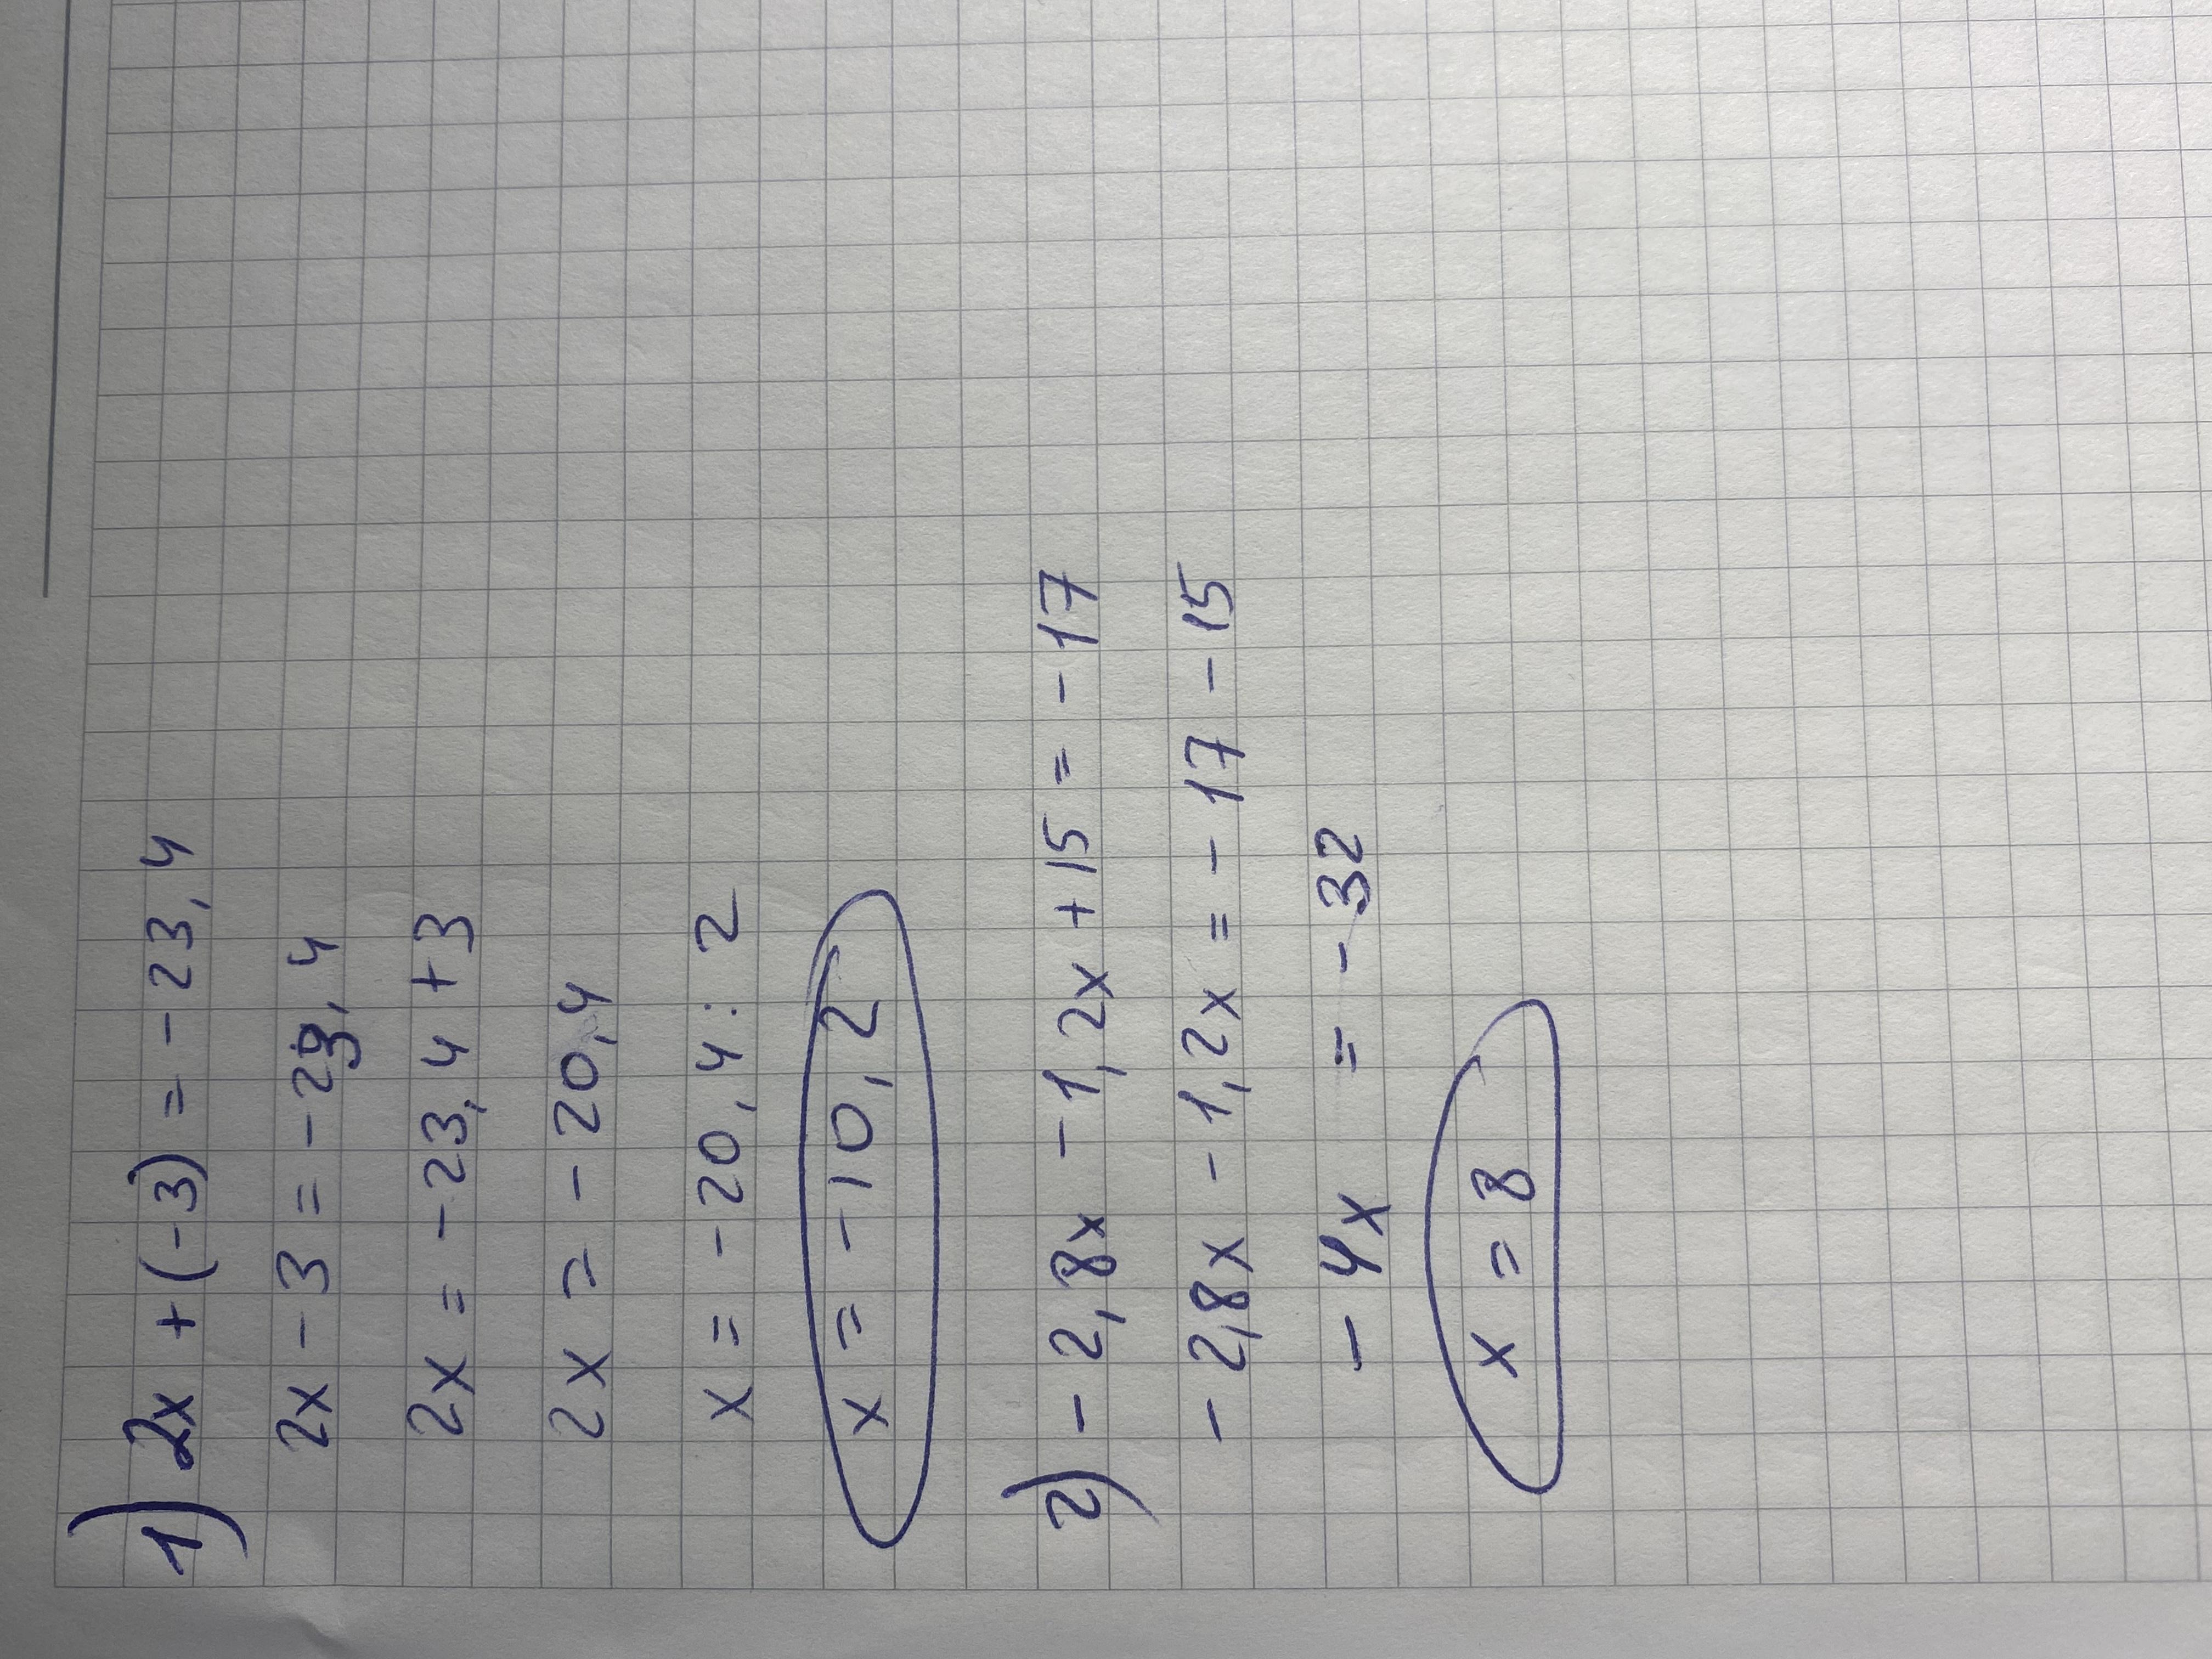 1) 2x + (-3) = -23,4
2x - 3 = -23,4
2x = -23,4 + 3
2x = -20,4
x = -20,4 : 2
x = -10,2
2) -2,8x - 1,2x + 15 = -17
-2,8x - 1,2x = -17 - 15
-4x = -32
x = 8